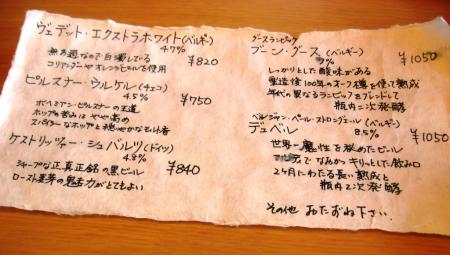 ヴェデット・エクストラホワイト(ベルギー)
4.7% ¥820
無ろ過なので白濁している
コリアンダーやオレンジピールを使用
ピルスナー・ウルケル(チェコ)
4.5% ¥750
ボヘミアン・ピルスナーの王道
ホップの苦みはやや高め
スパイシーなホップと穏やかなモルト香
ケストリッツァー・シュバルツ(ドイツ)
4.8% ¥840
シャープな正真正銘の黒ビール
ロースト麦芽の魅力がとてもよい
グースランビック
ブーン・グース(ベルギー)
7% ¥1050
しっかりとした酸味がある
製造後100年のオーク樽を使って熟成
年代の異なるランビックをブレンドして
瓶内二次発酵
ベルジャン・ペールストロングエール(ベルギー)
デュベル
8.5% ¥1050
世界一魔性を秘めたビール
でなめらかキリっとした飲み口
2ヶ月にわたる長い熟成と
瓶内2次発酵
その他 おたずね下さい